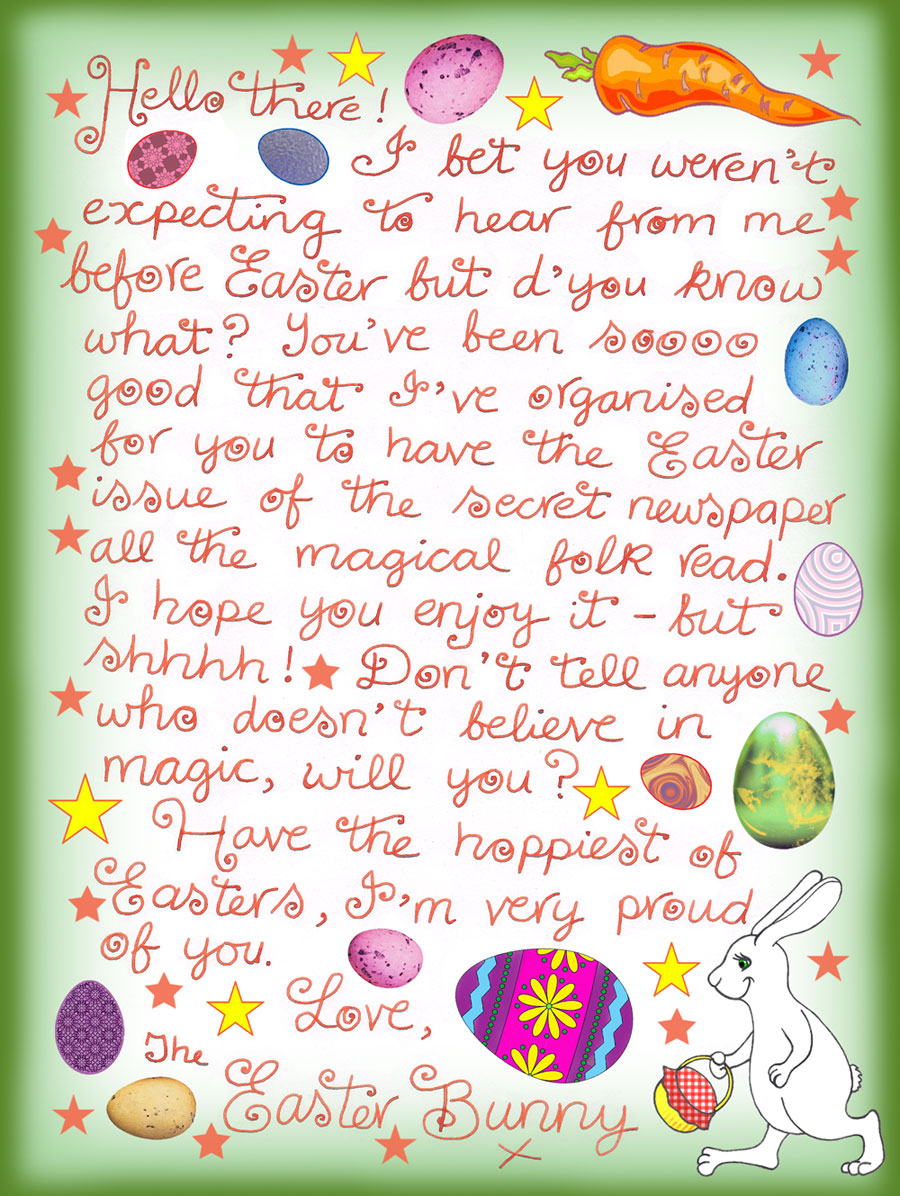 Hello there!
I bet you weren't
expecting to hear from me
before Easter but d'you know
what? You've been soooo
good that I've organised
for you to have the Easter
issue of the secret newspaper
all the magical folk read.
I hope you enjoy it – but
shhhh! Don't tell anyone
who doesn't believe in
magic, will you?
Have the hoppiest of
Easters, I'm very proud
of you.
Love,
The
Easter Bunny
x